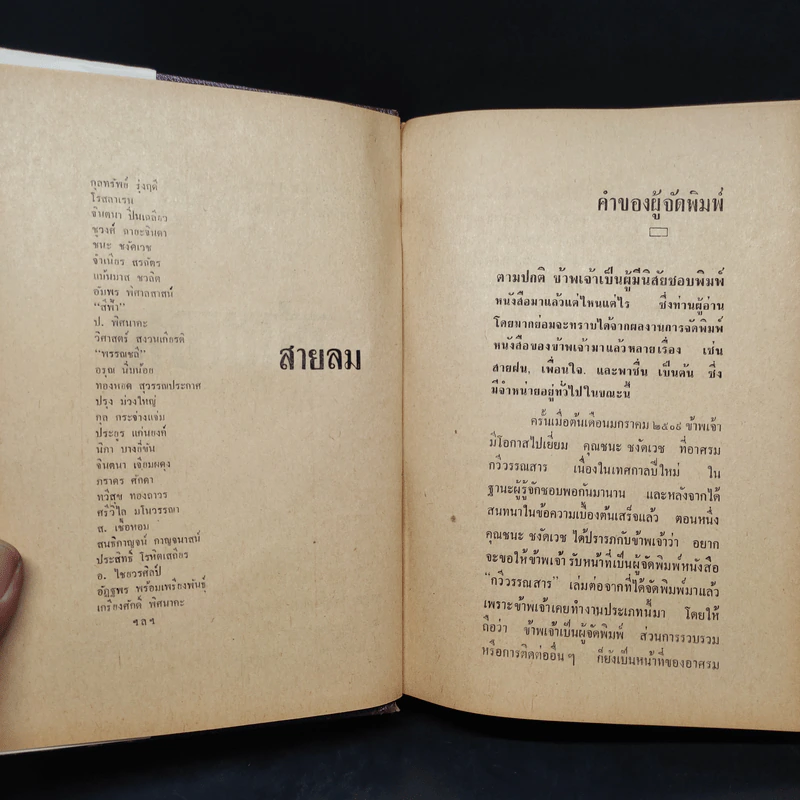 กุลทรัพย์ รุ่งฤดี
โรสลาเรน
จินตนา ปิ่นเฉลียว
ชูวงศ์ ฉายะจินดา
ชนะ ชงัดเวช
จำเนียร สรฉัตร
แม้นมาส ชวลิต
อัมพร พิศาลสาสน์
"สีฟ้า"
ป. พิศนาคะ
วิศาสตร์ สงวนเกียรติ
"พรรณชลี"
อรุณ นิ่มน้อย
ทองหยด สุวรรณประกาศ
ปรุง ม่วงใหญ่
กุล กระจ่างแจ่ม
ประกูร แก่นยงค์
นิภา บางยี่ขัน
จินตนา เจือมผดุง
ภราดร ศักดา
ทวีสุข ทองถาวร
ศรีวิไล มโนวรรณา
ส. เชื้อหอม
สนธิกาญจน์ กาญจนาสน์
ประสิทธิ์ โรหิตเสถียร
อ. ไชยวรศิลป์
อัฏฐพร พร้อมเพรียงพันธุ์
เกรียงศักดิ์ พิศนาคะ
ฯลฯ
สายลม
คำของผู้จัดพิมพ์
ตามปกติ ข้าพเจ้าเป็นผู้มีนิสัยชอบพิมพ์
หนังสือมาแล้วแต่ไหนแต่ไร ซึ่งท่านผู้อ่าน
โดยมากย่อมจะทราบได้จากผลงานการจัดพิมพ์
หนังสือของข้าพเจ้ามาแล้วหลายเรื่อง เช่น
สายฝน, เพื่อนใจ. และพาชื่น เป็นต้น ซึ่ง
มีจำหน่ายอยู่ทั่วไปในขณะนี้
ครั้นเมื่อต้นเดือนมกราคม ๒๕๐๙ ข้าพเจ้า
มีโอกาสไปเยี่ยม คุณชนะ ชงัดเวช ที่อาศรม
กวีวรรณสาร เนื่องในเทศกาลปีใหม่ ใน
ฐานะผู้รู้จักชอบพอกันมานาน และหลังจากได้
สนทนาในข้อความเบื้องต้นเสร็จแล้ว ตอนหนึ่ง
คุณชนะ ชงัดเวช ได้ปรารภกับข้าพเจ้าว่า อยาก
จะขอให้ข้าพเจ้า รับหน้าที่เป็นผู้จัดพิมพ์หนังสือ
"กวีวรรณสาร" เล่มต่อจากที่ได้จัดพิมพ์มาแล้ว
เพราะข้าพเจ้าเคยทำงานประเภทนี้มา โดยให้
ถือว่า ข้าพเจ้าเป็นผู้จัดพิมพ์ ส่วนการรวบรวม
หรือการติดต่ออื่น ๆ ก็ยังเป็นหน้าที่ของอาศรม